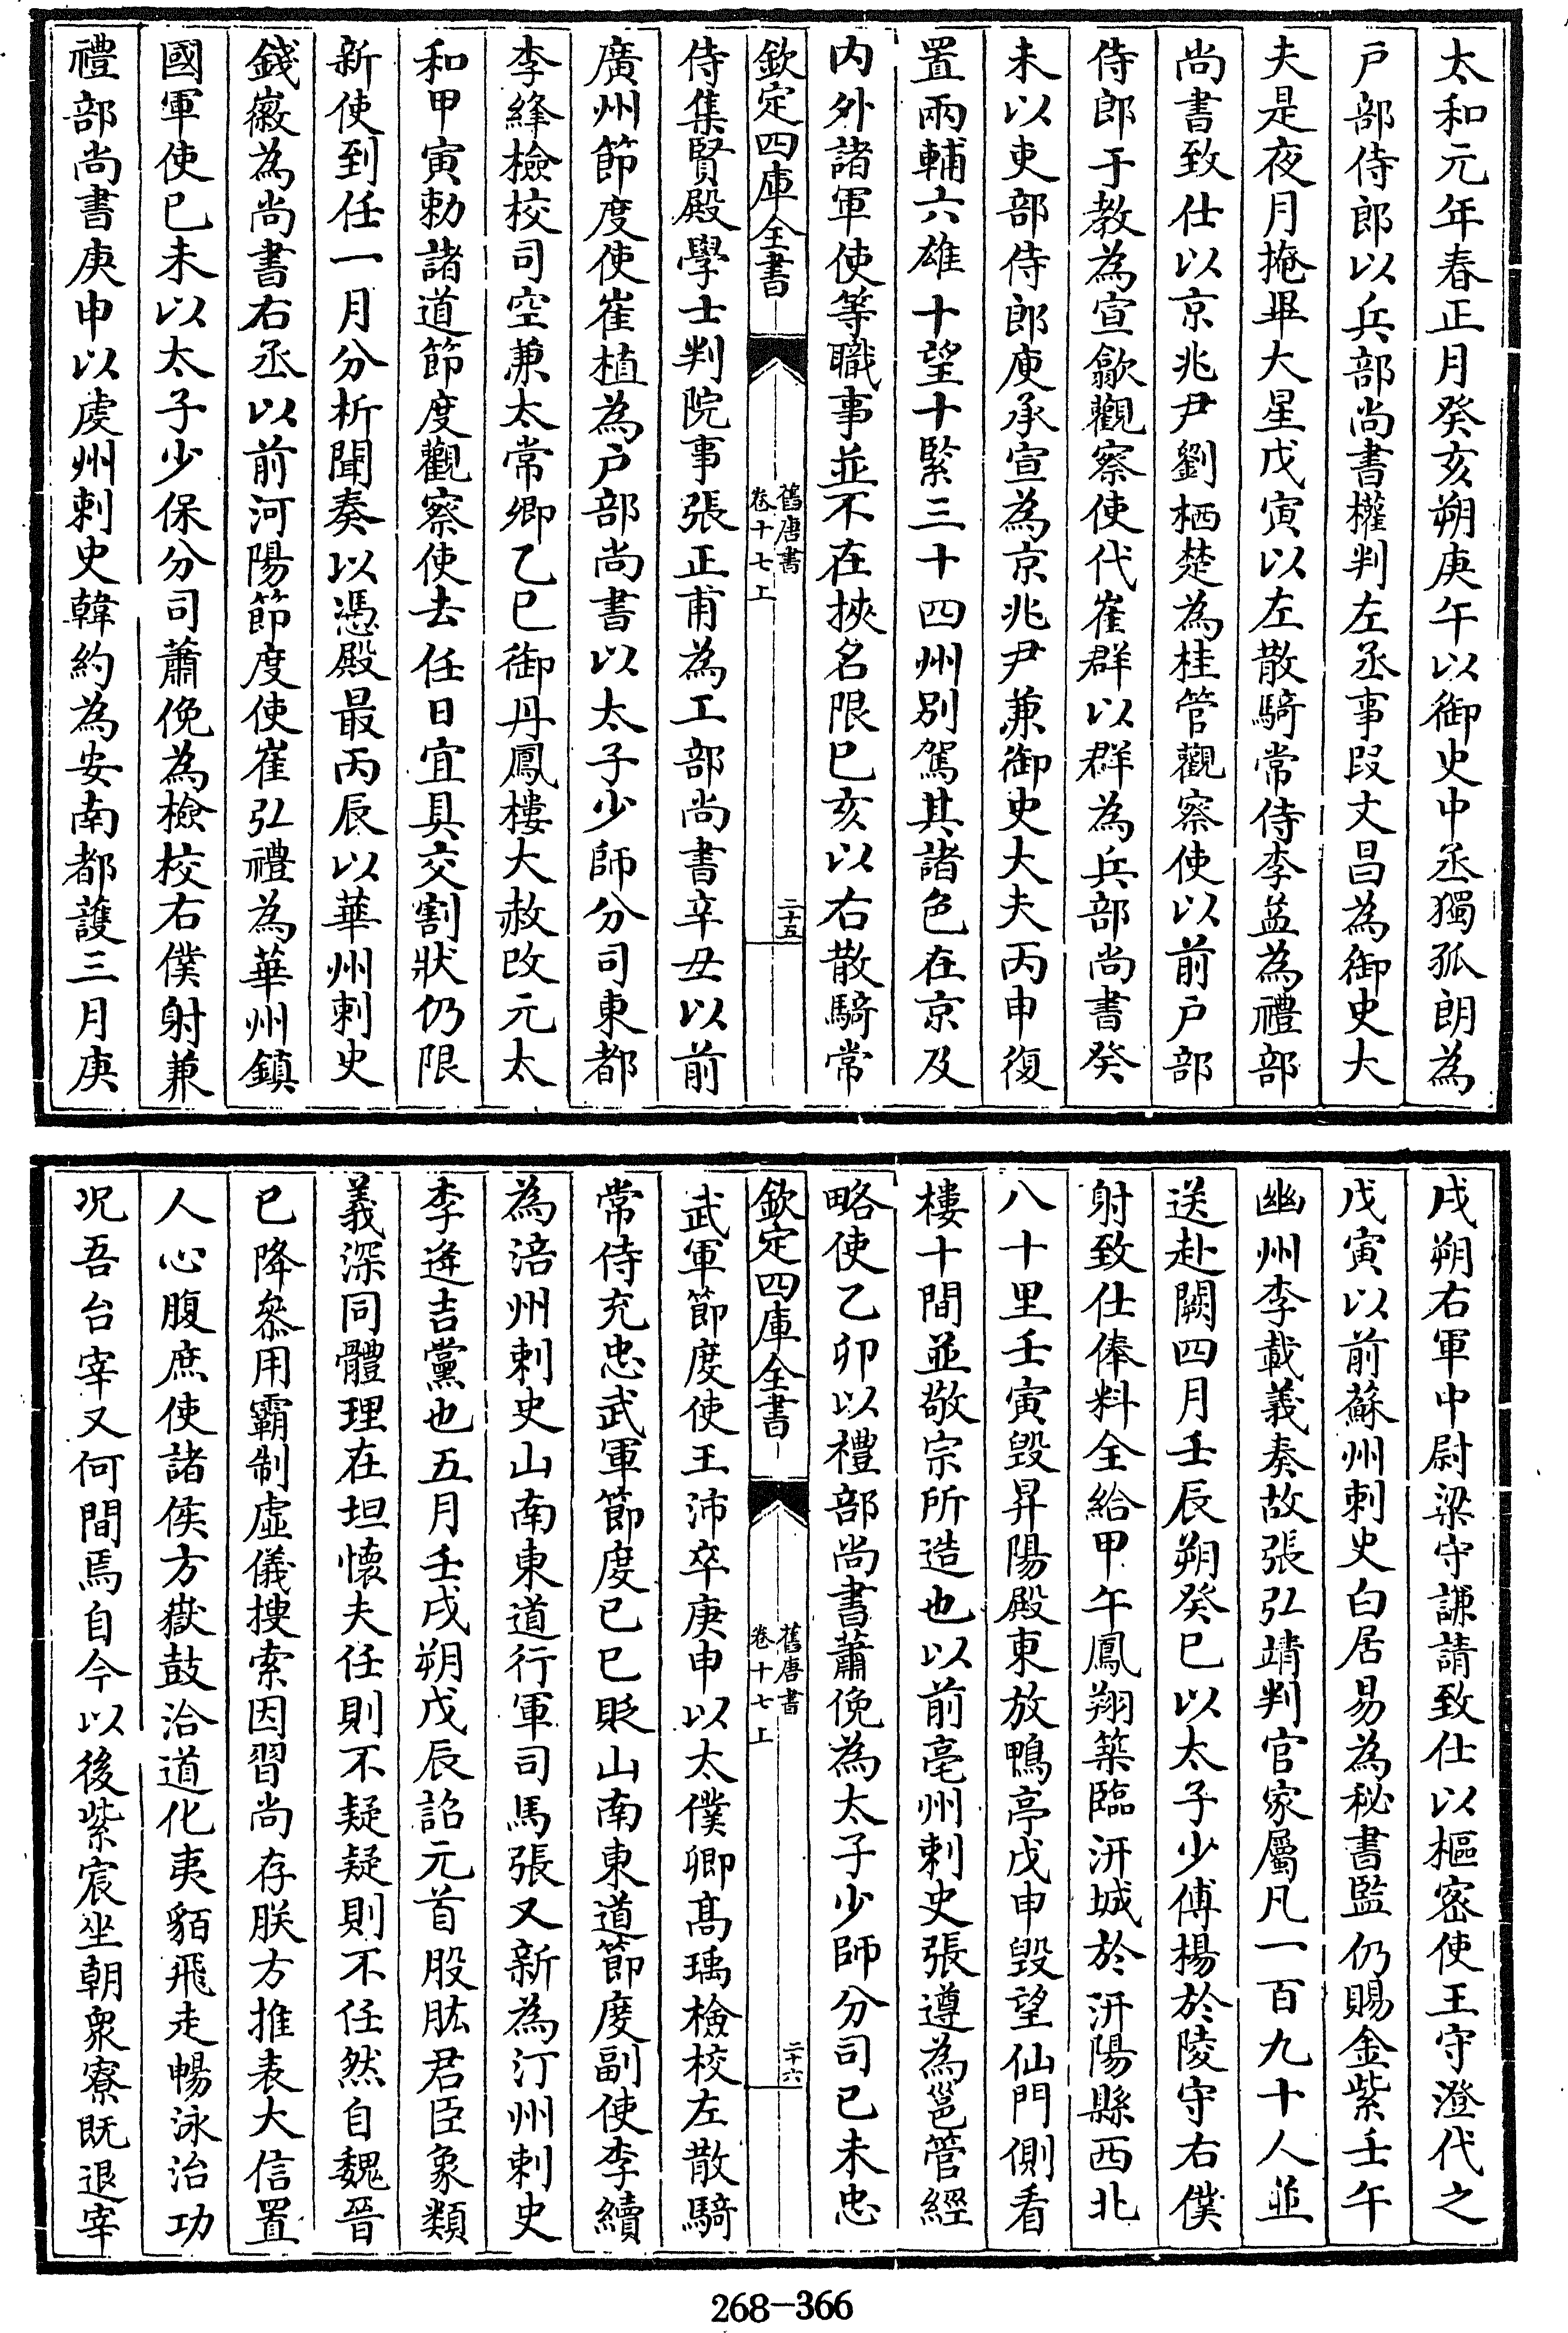 太和元年春正月癸亥朔庚午以御史中丞獨孤朗為
戸部侍郎以兵部尚書權判左丞事段文昌為御史大
夫是夜月掩畢大星戊寅以左散騎常侍李益為禮部
尚書致仕以京兆尹劉栖楚為桂管觀察使以前戸部
侍郎于敖為宣歙觀察使代崔群以群為兵部尚書癸
未以吏部侍郎庾承宣為京兆尹兼御史大夫丙申復
置兩輔六雄十望十緊三十四州別駕其諸色在京及
内外諸軍使等職事並不在挾名限已亥以右散騎常
欽定四庫全書
舊唐書
卷十七上
二十五
侍集賢殿學士判院事張正甫為工部尚書辛丑以前
廣州節度使崔植為戸部尚書以太子少師分司東都
李絳檢校司空兼太常卿乙已御丹鳳樓大赦改元太
和甲寅勅諸道節度觀察使去任日宜具交割狀仍限
新使到任一月分析聞奏以憑殿最丙辰以華州刺史
錢徽為尚書右丞以前河陽節度使崔弘禮為華州鎮
國軍使已未以太子少保分司蕭俛為檢校右僕射兼
禮部尚書庚申以虔州刺史韓約為安南都護三月庚
戌朔右軍中尉梁守謙請致仕以樞密使王守澄代之
戊寅以前蘇州刺史白居易為秘書監仍賜金紫壬午
幽州李載義奏故張弘靖判官家屬凡一百九十人並
送赴闕四月壬辰朔癸巳以太子少傅楊於陵守右僕
射致仕俸料全給甲午鳳翔築臨汧城於汧陽縣西北
八十里壬寅毀昇陽殿東放鴨亭戊申毀望仙門側看
樓十間並敬宗所造也以前亳州刺史張遵為邕管經
略使乙卯以禮部尚書蕭俛為太子少師分司已未忠
欽定四庫全書
舊唐書
卷十七上
二十六
武軍節度使王沛卒庚申以太僕卿髙瑀檢校左散騎
常侍充忠武軍節度已巳貶山南東道節度副使李續
為涪州刺史山南東道行軍司馬張又新為汀州刺史
李逢吉黨也五月壬戌朔戊辰詔元首股肱君臣象類
義深同體理在坦懷夫任則不疑疑則不任然自魏晉
已降叅用霸制虛儀搜索因習尚存朕方推表大信置
人心腹庶使諸侯方嶽鼓洽道化夷貊飛走暢泳治功
况吾台宰又何間焉自今以後紫宸坐朝衆寮既退宰
268-366